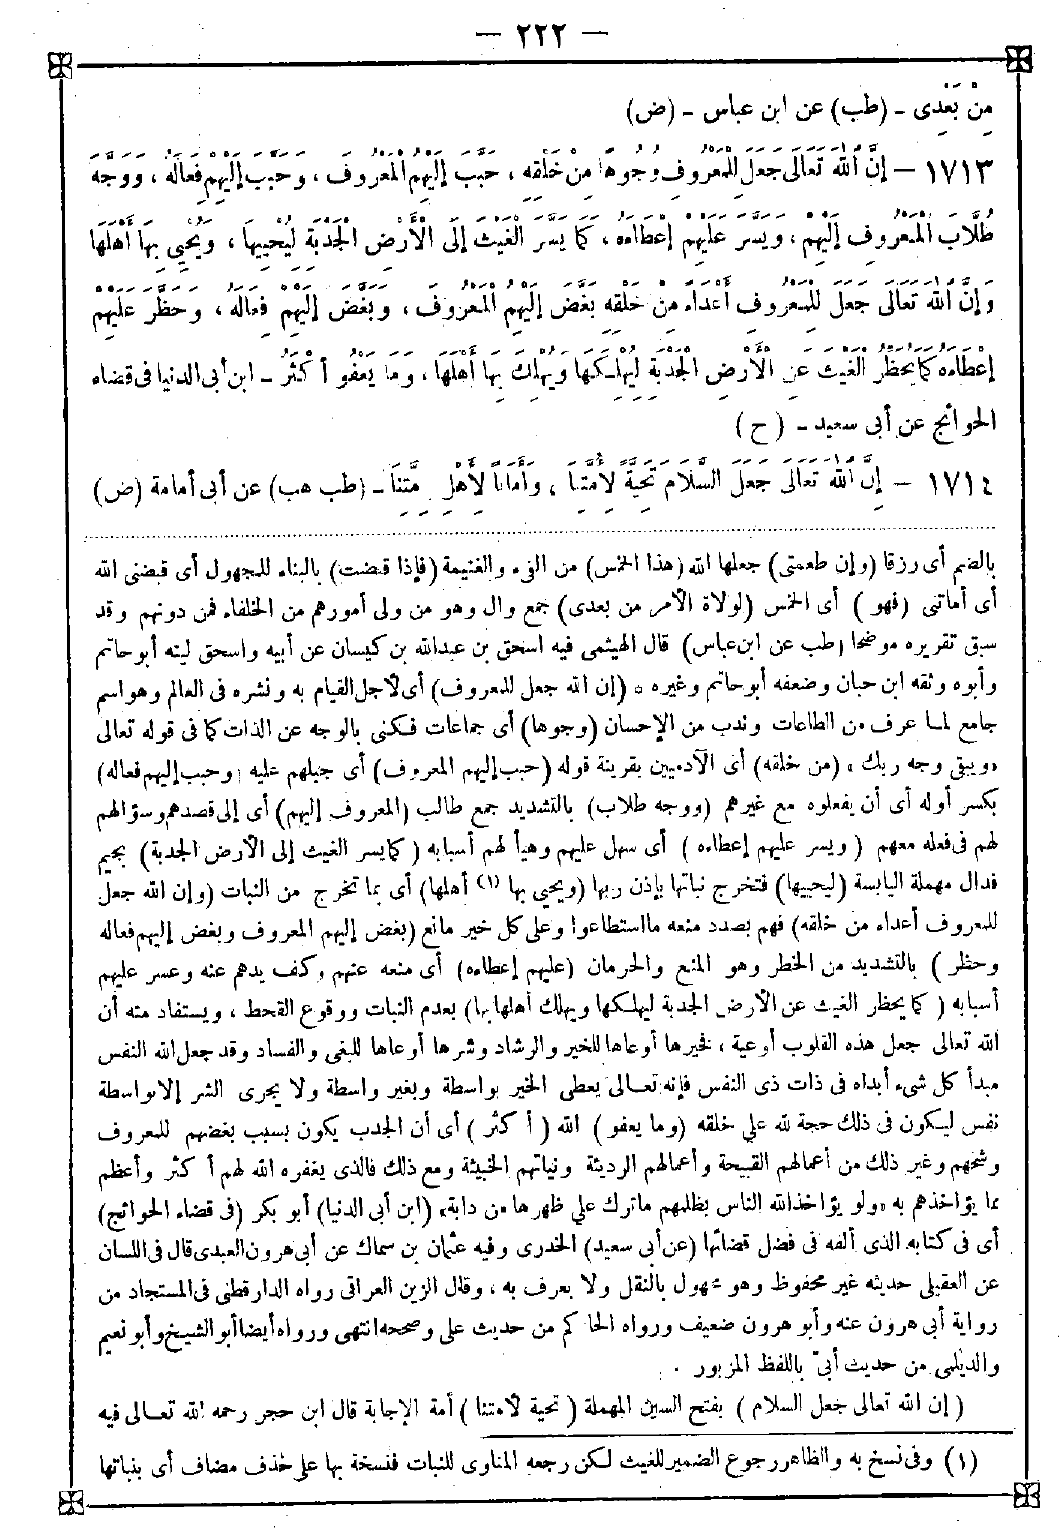 — ٢٢٢ —
مِنْ بَعْدِى - (طب) عن ابن عباس - (ض)
١٧١٣ - إِنَّ اللهَ تَعَالَى جَعَلَ لِلْمَعْرُوفِ وُجُوهًا مِنْ خَلْقِهِ ، حَبَّبَ إِلَيْهِمُ الْمَعْرُوفَ ، وَحَبَّبَ إِلَيْهِمْ فِعَالَهُ ، وَوَجَّهَ
طُلَّابَ الْمَعْرُوفِ إِلَيْهِمْ ، وَيَسَّرَ عَلَيْهِمْ إِعْطَاءَهُ ، كَمَا يَسَّرَ الْغَيْثَ إِلَى الْأَرْضِ الْجَدْبَةِ لِيُحْيِيهَا ، وَيُحْيِيَ بِهَا أَهْلَهَا
وَإِنَّ اللهَ تَعَالَى جَعَلَ لِلْمَعْرُوفِ أَعْدَاءً مِنْ خَلْقِهِ بَغَّضَ إِلَيْهِمُ الْمَعْرُوفَ ، وَبَغَّضَ إِلَيْهِمْ فِعَالَهُ ، وَحَظَّرَ عَلَيْهِمْ
إِعْطَاءَهُ كَمَا يُحَظِّرُ الْغَيْثَ عَنِ الْأَرْضِ الْجَدْبَةِ لِيُهْلِكَهَا وَيُهْلِكَ بِهَا أَهْلَهَا ، وَمَا يَعْفُو أَكْثَرُ - ابن أبى الدنيا فى قضاء
الحوائج عن أبى سعيد - (ح)
١٧١٤ - إِنَّ اللهَ تَعَالَى جَعَلَ السَّلَامَ تَحِيَّةً لِأُمَّتِنَا ، وَأَمَانًا لِأَهْلِ ذِمَّتِنَا - (طب هب) عن أبى أمامة (ض)
بالضم أى رزقا (وإن طعمتى) جعلها الله (هذا الخمس) من الفىء والغنيمة (فإذا قبضت) بالبناء للمجهول أى قبضنى الله
أى أماتنى (فهو) أى الخمس (لولاة الأمر من بعدى) جمع وال وهو من ولى أمورهم من الخلفاء فمن دونهم وقد
سبق تقريره موضحا (طب عن ابن عباس) قال الهيثمى فيه اسحق بن عبدالله بن كيسان عن أبيه واسحق لينه أبوحاتم
وأبوه وثقه ابن حبان وضعفه أبوحاتم وغيره ه (إن الله جعل للمعروف) أى لأجل القيام به ونشره فى العالم وهو اسم
جامع لما عرف من الطاعات وندب من الإحسان (وجوها) أى جماعات فكنى بالوجه عن الذات كما فى قوله تعالى
«ويبقى وجه ربك» (من خلقه) أى الآدميين بقرينة قوله (حبب إليهم المعروف) أى جبلهم عليه (وحبب إليهم فعاله)
بكسر أوله أى أن يفعلوه مع غيرهم (ووجه طلاب) بالتشديد جمع طالب (المعروف إليهم) أى إلى قصدهم وسؤالهم
لهم فى فعله معهم (ويسر عليهم إعطاءه) أى سهل عليهم وهيأ لهم أسبابه (كما يسر الغيث إلى الأرض الجدبة) بجيم
فدال مهملة اليابسة (ليحييها) فتخرج نباتها بإذن ربها (ويحيى بها (١) أهلها) أى بما تخرج من النبات (وإن الله جعل
للمعروف أعداء من خلقه) فهم بصدد منعه ما استطاعوا وعلى كل خير مانع (بغض إليهم المعروف وبغض إليهم فعاله
وحظر) بالتشديد من الحظر وهو المنع والحرمان (عليهم إعطاءه) أى منعه عنهم وكف يدهم عنه وعسر عليهم
أسبابه (كما يحظر الغيث عن الأرض الجدبة ليهلكها ويهلك أهلها بها) بعدم النبات ووقوع القحط ، ويستفاد منه أن
الله تعالى جعل هذه القلوب أوعية ، فخيرها أوعاها للخير والرشاد وشرها أوعاها للبغى والفساد وقد جعل الله النفس
مبدأ كل شىء أبداه فى ذات ذى النفس فإنه تعالى يعطى الخير بواسطة وبغير واسطة ولا يجرى الشر إلا بواسطة
نفس ليكون فى ذلك حجة لله على خلقه (وما يعفو) الله (أكثر) أى أن الجدب يكون بسبب بغضهم للمعروف
وشحهم وغير ذلك من أعمالهم القبيحة وأعمالهم الرديئة ونياتهم الخبيثة ومع ذلك فالذى يغفره الله لهم أكثر وأعظم
مما يؤاخذهم به «ولو يؤاخذ الله الناس بظلمهم ماترك على ظهرها من دابة» (ابن أبى الدنيا) أبو بكر (فى قضاء الحوائج)
أى فى كتابه الذى ألفه فى فضل قضائها (عن أبى سعيد) الخدرى وفيه عثمان بن سماك عن أبى هرون العبدى قال فى اللسان
عن العقيلى حديثه غير محفوظ وهو مجهول بالنقل ولا يعرف به ، وقال الزين العراقى رواه الدارقطنى فى المستجاد من
رواية أبى هرون عنه وأبو هرون ضعيف ورواه الحاكم من حديث على وصححه انتهى ورواه أيضا أبو الشيخ وأبو نعيم
والديلمى من حديث أبىّ باللفظ المزبور .
(إن الله تعالى جعل السلام) بفتح السين المهملة (تحية لأمتنا) أمة الإجابة قال ابن حجر رحمه الله تعالى فيه
(١) وفى نسخ به والظاهر رجوع الضمير للغيث لكن رجعه المناوى للنبات فنسخة بها على حذف مضاف أى بنباتها